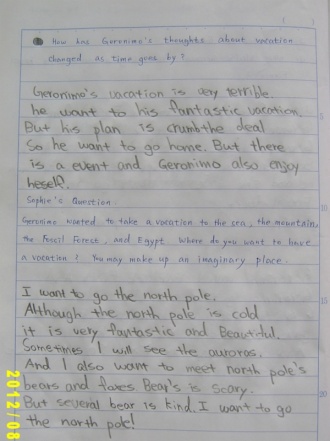 How has Geronimo's thoughts about vacation
changed as time goes by?
Geronimo's vacation is very terrible.
he want to his fantastic vacation.
But his plan is crumb the deal
So he want to go home. But there
is a event and Geronimo also enjoy
heself.
Sophie's Question
Geronimo wanted to take a vacation to the sea, the mountain,
the Fossil Forest, and Egypt. Where do you want to have
a vacation? You may make up an imaginary place.
I want to go the north pole.
Although the north pole is cold
it is very fantastic and Beautiful.
Sometimes I will see the auroras.
And I also want to meet north pole's
bears and foxes Bear's is scary.
But several bear is kind. I want to go
the north pole!
2012/08